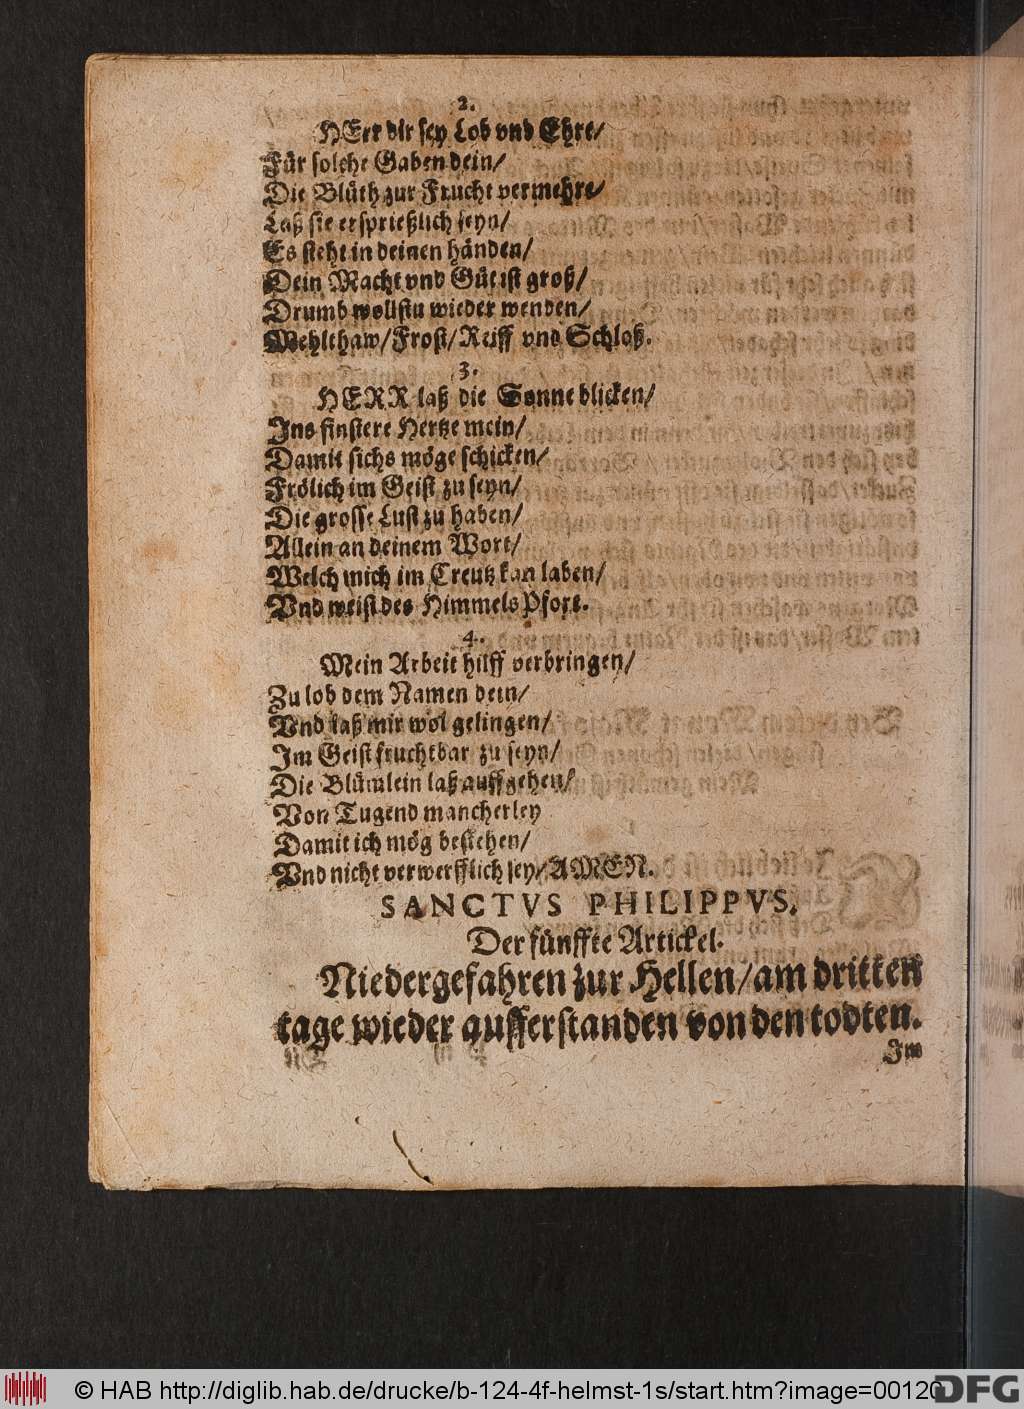 2.
HErr dir sey Lob vnd Ehre/
Für solche Gaben dein/
Die Blüth zur Frucht vermehre/
Laß sie ersprießlich seyn/
Es steht in deinen händen/
Dein Macht vnd Güt ist groß/
Drumb wollstu wieder wenden/
Mehlthaw/Frost/Reiff vnd Schloß.
3.
HERR laß die Sonne blicken/
Ins finstere Hertze mein/
Damit sichs möge schicken/
Frölich im Geist zu seyn/
Die grosse Lust zu haben/
Allein an deinem Wort/
Welch mich im Creutz kan laben/
Vnd weist des Himmels Pfort.
4.
Mein Arbeit hilff verbringen/
Zu lob dem Namen dein/
Vnd laß mir wol gelingen/
Im Geist fruchtbar zu seyn/
Die Blümlein laß auffgehen/
Von Tugend mancherley
Damit ich mög bestehen/
Vnd nicht verwerfflich sey/AMEN.
SANCTVS PHILIPPVS.
Der fünffte Artickel.
Niedergefahren zur Hellen/am dritten
tage wieder aufferstanden von den todten.
Im
© HAB http://diglib.hab.de/drucke/b-124-4f-helmst-1s/start.htm?image=00120
DFG